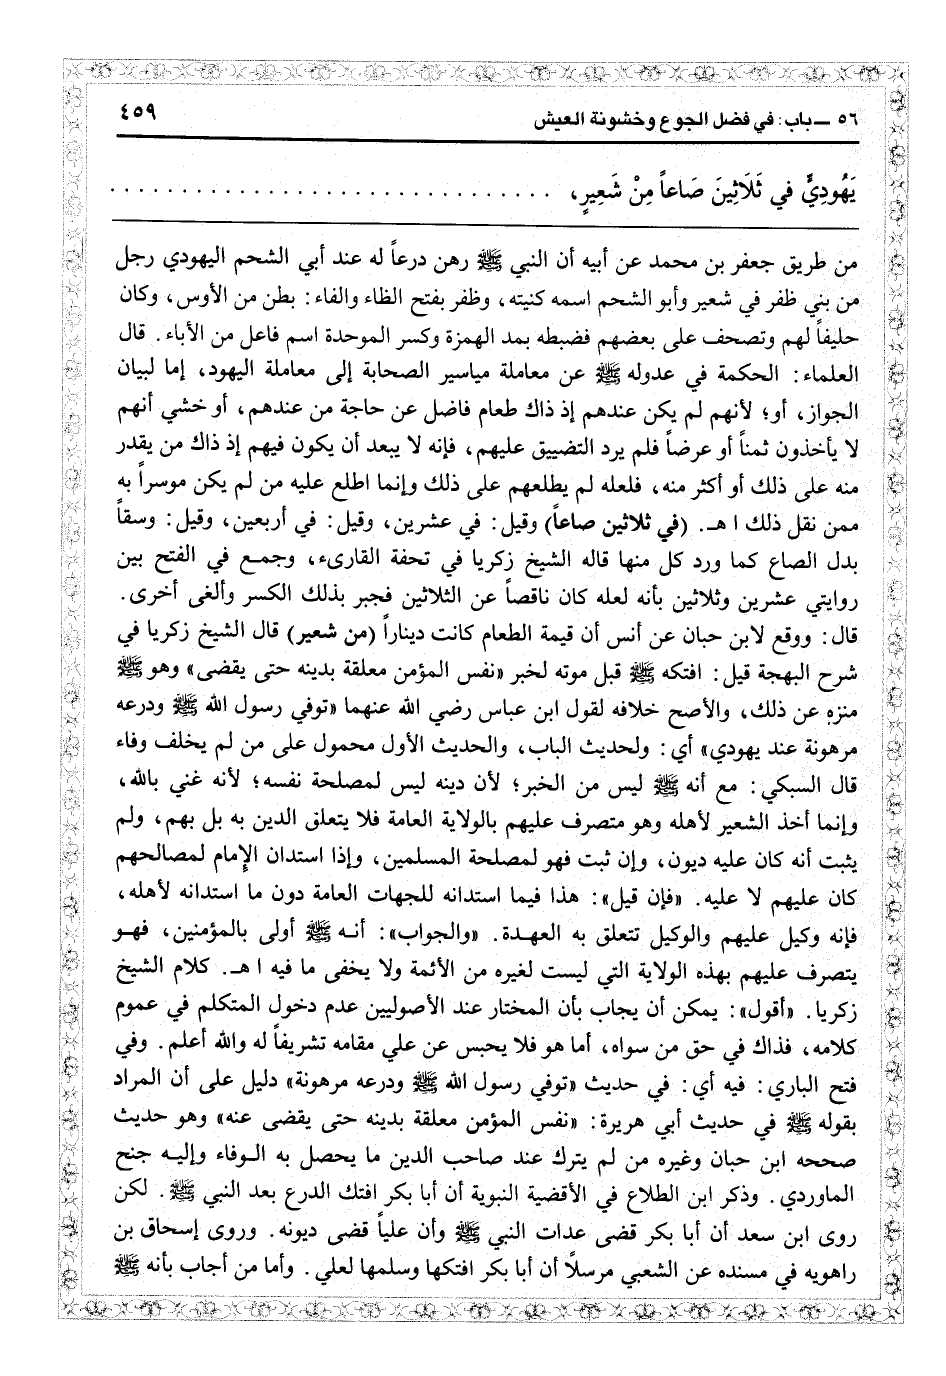 ٥٦ ــ باب: في فضل الجوع وخشونة العيش
٤٥٩
يَهُودِيٍّ في ثَلَاثِينَ صَاعاً مِنْ شَعِيرٍ، . . . . . . . . . . . . . . . . . . . . . . . . . . . . . . .
من طريق جعفر بن محمد عن أبيه أن النبي ﷺ رهن درعاً له عند أبي الشحم اليهودي رجل
من بني ظفر في شعير وأبو الشحم اسمه كنيته، وظفر بفتح الظاء والفاء: بطن من الأوس، وكان
حليفاً لهم وتصحف على بعضهم فضبطه بمد الهمزة وكسر الموحدة اسم فاعل من الأباء. قال
العلماء: الحكمة في عدوله ﷺ عن معاملة مياسير الصحابة إلى معاملة اليهود، إما لبيان
الجواز، أو؛ لأنهم لم يكن عندهم إذ ذاك طعام فاضل عن حاجة من عندهم، أو خشي أنهم
لا يأخذون ثمناً أو عرضاً فلم يرد التضييق عليهم، فإنه لا يبعد أن يكون فيهم إذ ذاك من يقدر
منه على ذلك أو أكثر منه، فلعله لم يطلعهم على ذلك وإنما اطلع عليه من لم يكن موسراً به
ممن نقل ذلك ا هـ. (في ثلاثين صاعاً) وقيل: في عشرين، وقيل: في أربعين، وقيل: وسقاً
بدل الصاع كما ورد كل منها قاله الشيخ زكريا في تحفة القارىء، وجمع في الفتح بين
روايتي عشرين وثلاثين بأنه لعله كان ناقصاً عن الثلاثين فجبر بذلك الكسر وألغى أخرى.
قال: ووقع لابن حبان عن أنس أن قيمة الطعام كانت ديناراً (من شعير) قال الشيخ زكريا في
شرح البهجة قيل: افتكه ﷺ قبل موته لخبر «نفس المؤمن معلقة بدينه حتى يقضى» وهو ﷺ
منزه عن ذلك، والأصح خلافه لقول ابن عباس رضي الله عنهما «توفي رسول الله ﷺ ودرعه
مرهونة عند يهودي» أي: ولحديث الباب، والحديث الأول محمول على من لم يخلف وفاء
قال السبكي: مع أنه ﷺ ليس من الخبر؛ لأن دينه ليس لمصلحة نفسه؛ لأنه غني بالله،
وإنما أخذ الشعير لأهله وهو متصرف عليهم بالولاية العامة فلا يتعلق الدين به بل بهم، ولم
يثبت أنه كان عليه ديون، وإن ثبت فهو لمصلحة المسلمين، وإذا استدان الإمام لمصالحهم
كان عليهم لا عليه. «فإن قيل»: هذا فيما استدانه للجهات العامة دون ما استدانه لأهله،
فإنه وكيل عليهم والوكيل تتعلق به العهدة. «والجواب»: أنه ﷺ أولى بالمؤمنين، فهو
يتصرف عليهم بهذه الولاية التي ليست لغيره من الأئمة ولا يخفى ما فيه ا هـ. كلام الشيخ
زكريا. «أقول»: يمكن أن يجاب بأن المختار عند الأصوليين عدم دخول المتكلم في عموم
كلامه، فذاك في حق من سواه، أما هو فلا يحبس عن علي مقامه تشريفاً له والله أعلم. وفي
فتح الباري: فيه أي: في حديث «توفي رسول الله ﷺ ودرعه مرهونة» دليل على أن المراد
بقوله ﷺ في حديث أبي هريرة: «نفس المؤمن معلقة بدينه حتى يقضى عنه» وهو حديث
صححه ابن حبان وغيره من لم يترك عند صاحب الدين ما يحصل به الوفاء وإليه جنح
الماوردي. وذكر ابن الطلاع في الأقضية النبوية أن أبا بكر افتك الدرع بعد النبي ﷺ. لكن
روى ابن سعد أن أبا بكر قضى عدات النبي ﷺ وأن علياً قضى ديونه. وروى إسحاق بن
راهويه في مسنده عن الشعبي مرسلاً أن أبا بكر افتكها وسلمها لعلي. وأما من أجاب بأنه ﷺ